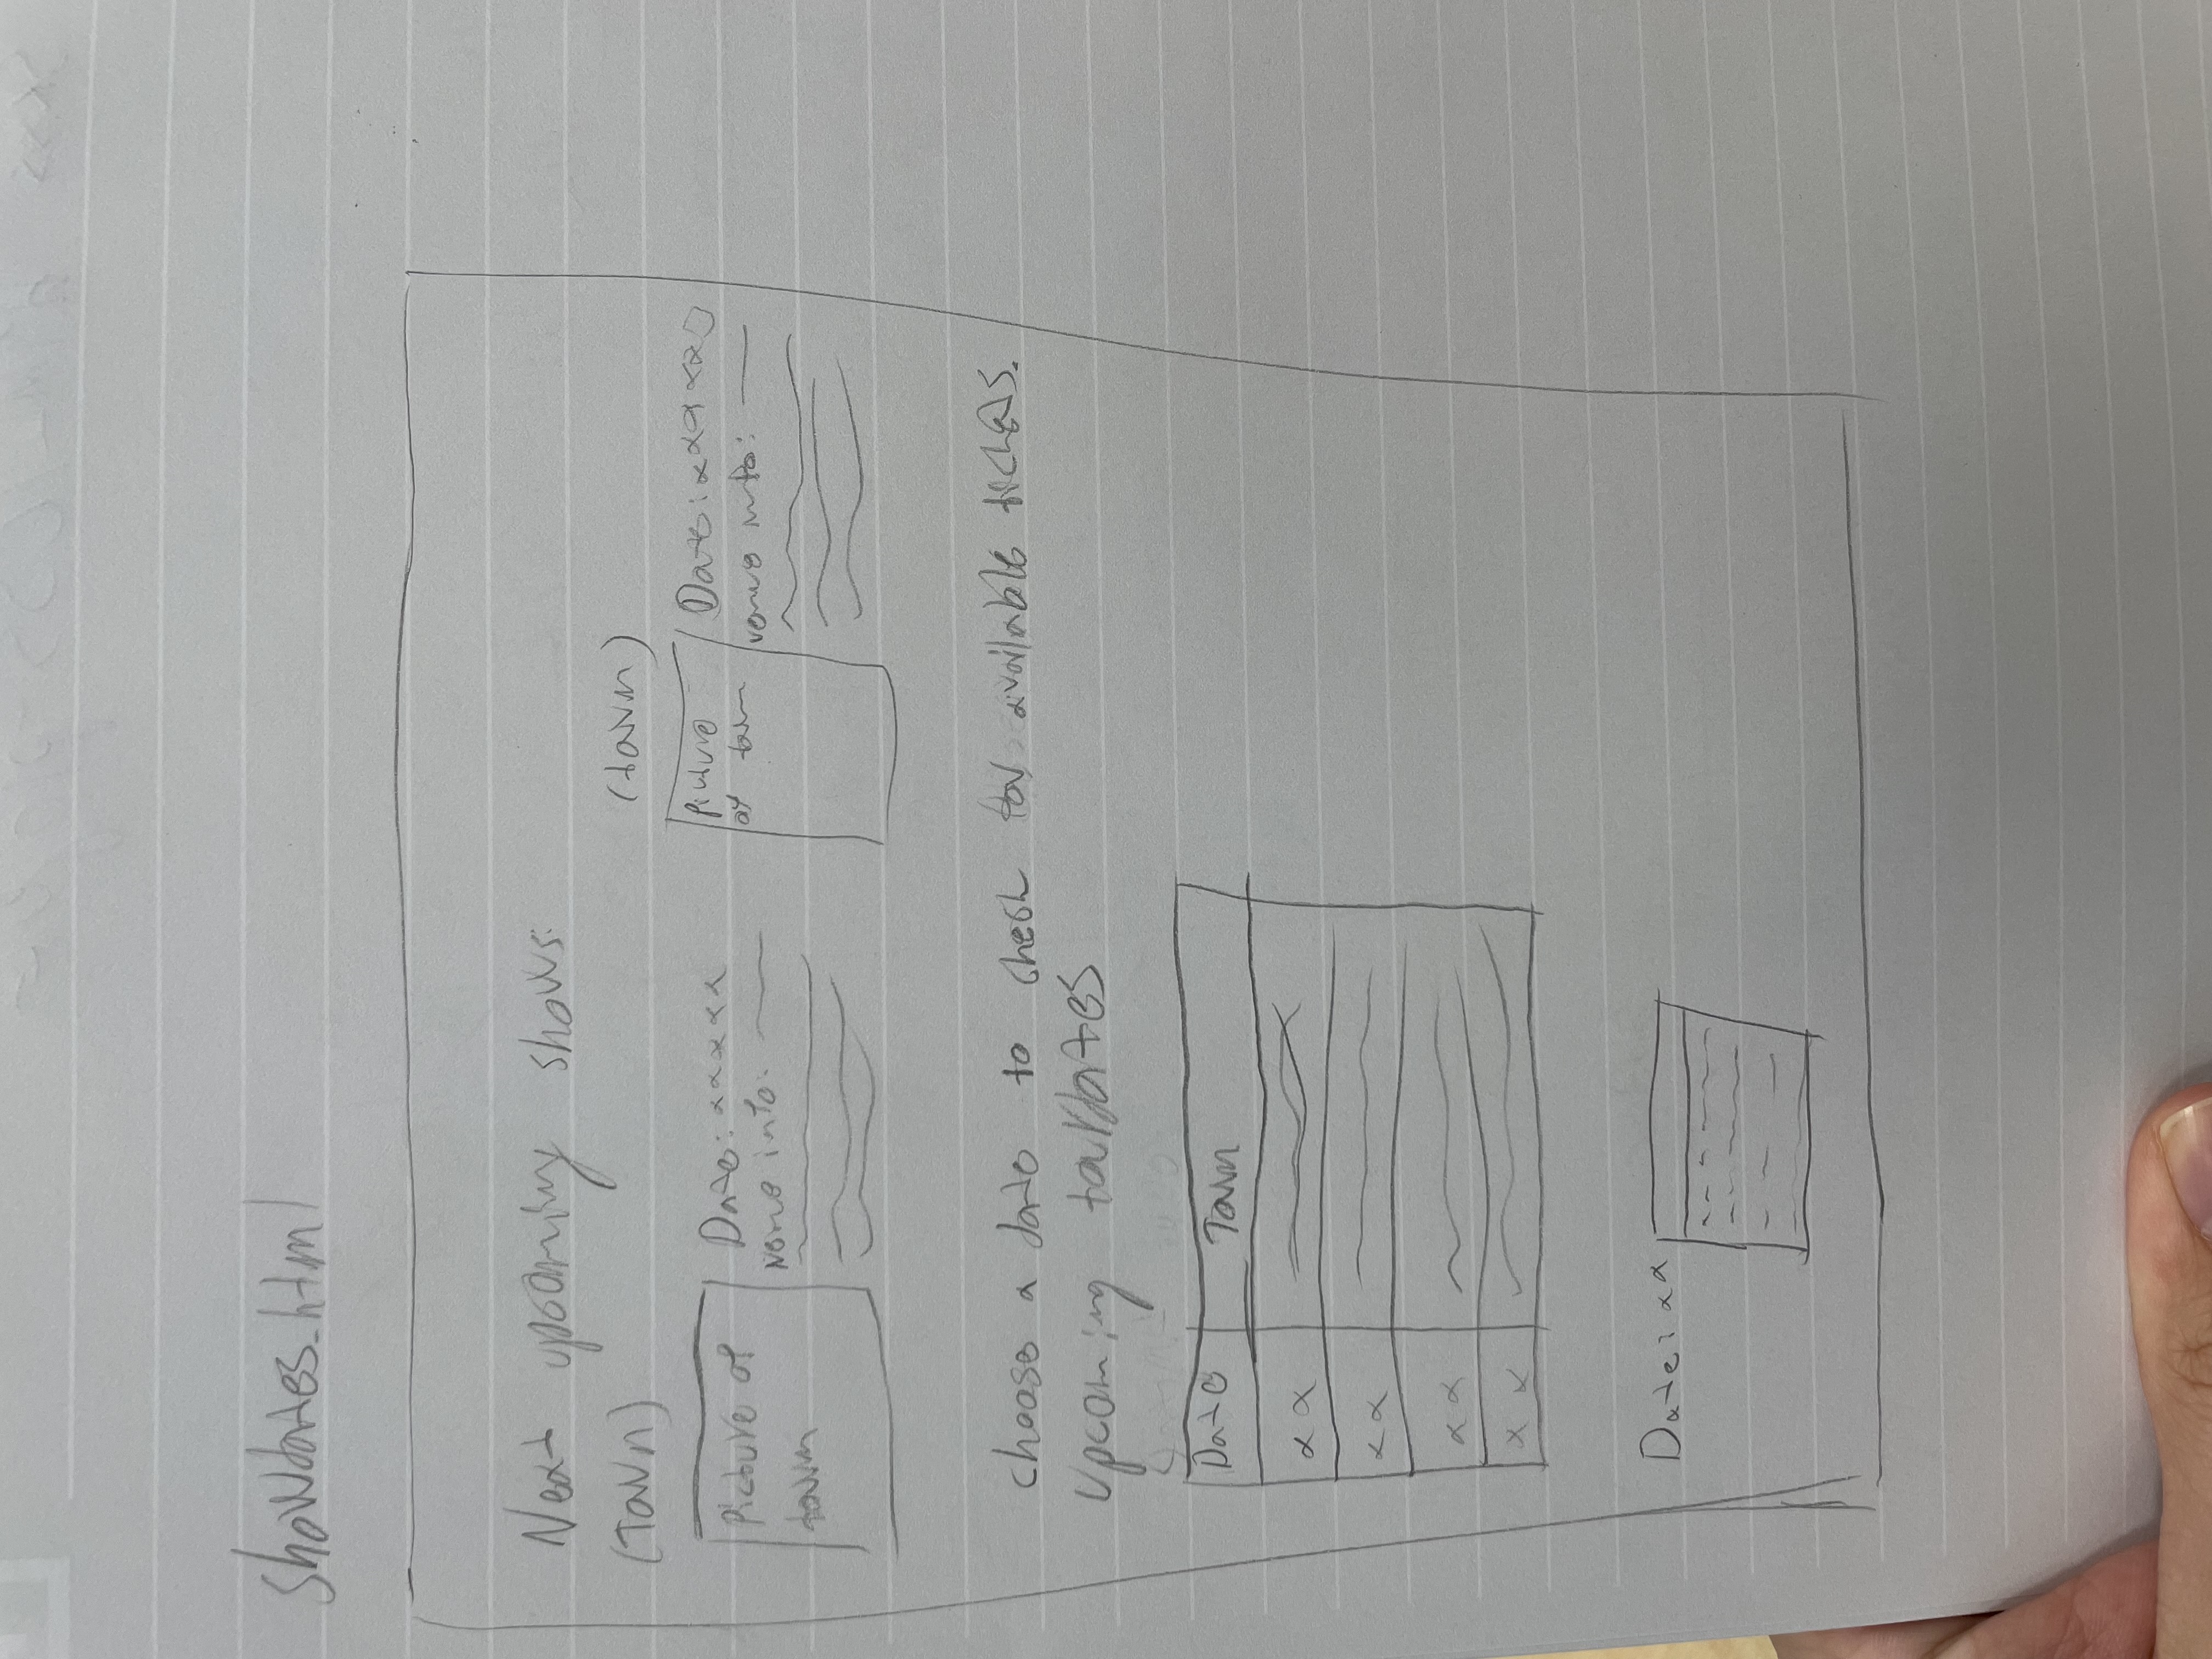 Showdates.html
Next upcoming shows:
(Town)
Picture of
town
Date: xxxxx
venue info:
(town)
Picture
of town
Date: xxxxxx
venue info:
choose a date to check for available tickets.
Upcoming tourdates
Date Town
xx
xx
xx
xx
Date: xx